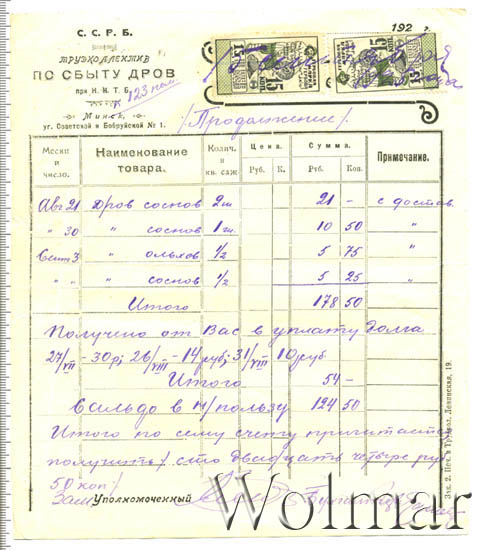 С. С. Р. Б.
192 г.
ТРУДКОЛЛЕКТИВ
ПО СБЫТУ ДРОВ
при Н. К. Т. Б.
г. Минск,
уг. Советской и Бобруйской № 1.
15 КОП
15
/Продолжение/
Месяц и число. Наименование товара. Колич. в кв. саж. Цена. Руб. К. Сумма. Руб. Коп. Примечание.
Авг 21 Дров соснов 2 ш 21 - с достав.
" 30 " соснов 1 ш. 10 50 "
Сент 3 " ольхов 1/2 5 75 "
" " " соснов 1/2 5 25 "
Итого 178 50
Получено от Вас в уплату долга
27/VII - 30 р; 26/VIII - 14 руб; 31/VIII 10 руб
Итого 54 -
Сальдо в н/пользу 124 50
Итого по сему счету причитается
получить / сто двадцать четыре руб.
50 коп /
Зам Уполномоченный
Wolmar